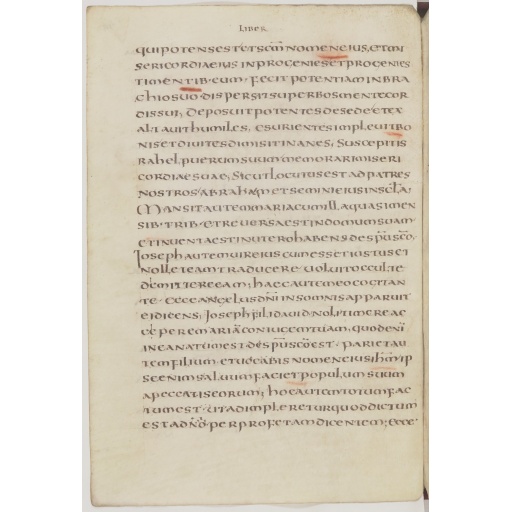 LIBER
quipotensestetscmnomeneius,etmi
sericordiaeiusinprogeniesetprogenies
timentib·eum·fecitpotentiaminbra
chiosuo·dispersitsuperbosmentecor
dissui; deposuitpotentesdesedeetex
altauithumiles, esurientesimpleuitbo
nisetdiuitesdimisitinanes; suscepitis
rahel, puerumsuummemorarimiseri
cordiaesuae; sicutlocutusestadpatres
nostros·abrahametsemınieiusinscla;
Mansitautemmariacumillaquasimen
sib·trib·etreuersaestindomumsuam
etinuentaestinuterohabensdespuscō,
Iosephautemuireiuscumessetiustuset
nolleteamtraducere·uoluitocculte
demittereeam; haecautemeocogitan
te·ecceangelusdniinsomnisapparuit
eidicens; Iosephfilidauidnolitimereac
cipere mariāconiugemtuam, quodenī
ineanatumestdespuscōest·parietau
temfilium·etuocabisnomeneiusihmip
seenimsaluumfacietpopulumsuum
apeccatiseorum; hocautemtotumfac
tumest·utadimplereturquoddictum
estadnō·perprofetamdicentem; ecce